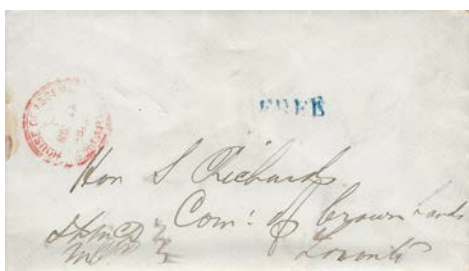 HOUSE OF ASSEM
FREE
Hon S Richards
Com: of Crown Lands
Toronto